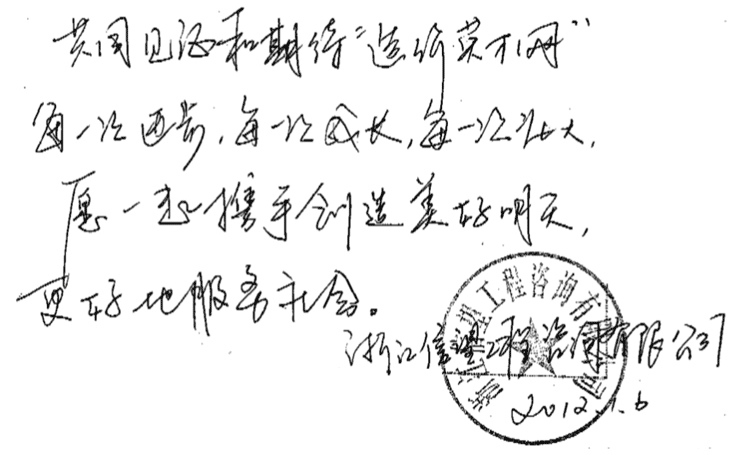 共同见证和期待“造价英才网”
每一次进步，每一次成长，每一次壮大，
愿一起携手创造美好明天，
更好地服务社会。
浙江信望工程咨询有限公司
2012.1.6